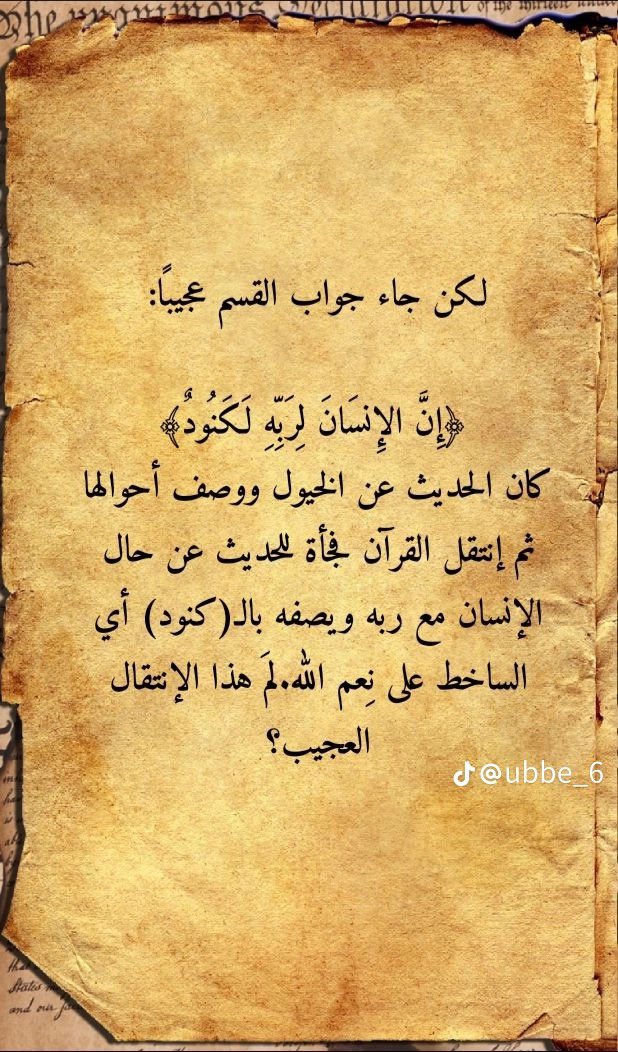 The unanimous Declaration of the thirteen united
لكن جاء جواب القسم عجيبًا:
﴿إِنَّ الإِنسَانَ لِرَبِّهِ لَكَنُودٌ﴾
كان الحديث عن الخيول ووصف أحوالها
ثم إنتقل القرآن فجأة للحديث عن حال
الإنسان مع ربه ويصفه بالـ(كنود) أي
الساخط على نِعم الله.لمَ هذا الإنتقال
العجيب؟
@ubbe_6
that
States
and our